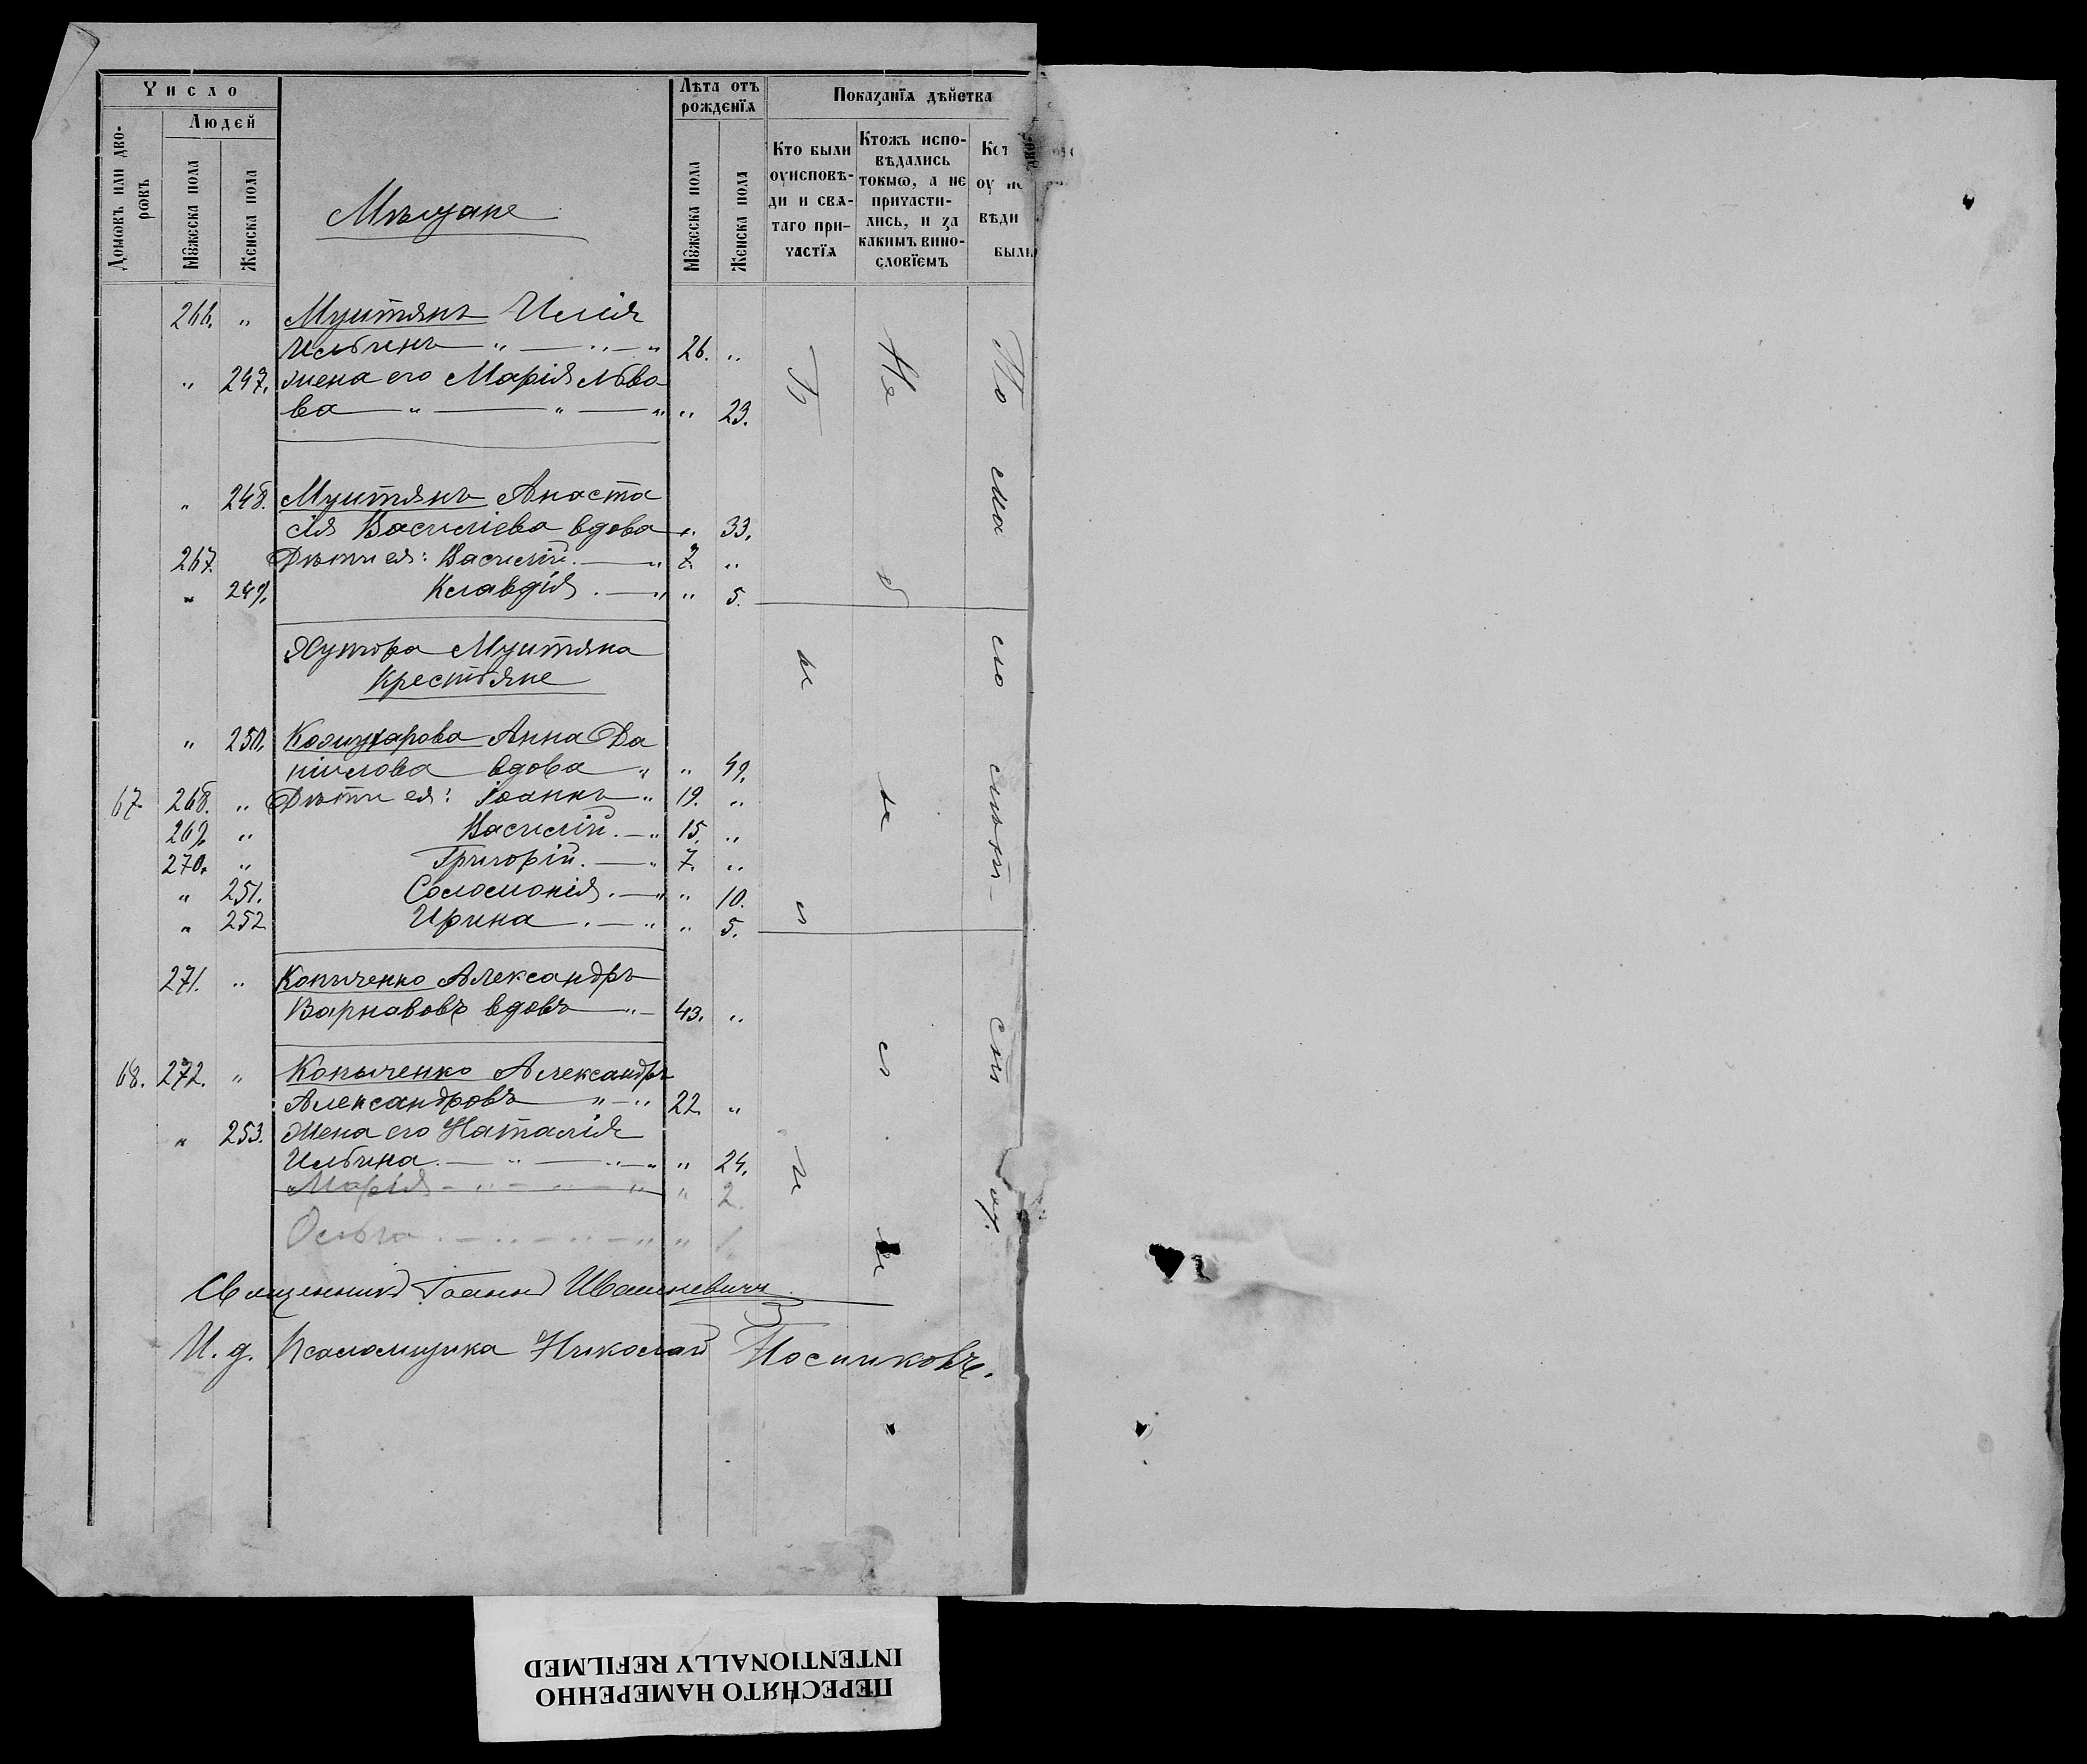 Число
Лѣта отъ рожденїѧ
Показанїѧ дѣйства
Домовъ или дворѡвъ
Людей
Мꙋжеска пола
Женска пола
Мꙋжеска пола
Женска пола
Кто были оуисповѣди и свѧтаго причастїѧ
Ктожъ исповѣдались токмѡ, а не причастились, и за какимъ винословїемъ
Кот
оу ис
вѣди
были
Мѣщане
266. " Мунтянъ Илія
Ильинъ " — " — " 26. "
" 247. жена его Марія Льво
ва — " — " — " " 23.
" 248. Мунтянъ Анаста
сія Василіева вдова " 33.
267. Дѣти ея: Василій. — " 7. "
" 249. Клавдія. — " " 5.
Хутора Мунтяна
Крестьяне
" 250. Кожухарова Анна Да
ніилова вдова " " 49.
67 268. " Дѣти ея: Іоаннъ " 19. "
269 " Василій. — " 15. "
270. " Григорій. — " 7. "
" 251. Соломонія. — " " 10.
" 252 Ирина. — " " 5.
271. " Копыченко Александръ
Варнавовъ вдовъ " — 43. "
68. 272. " Копыченко Александръ
Александровъ " — " 22. "
" 253. Жена его Наталія
Ильина. — " — " — " " 24.
Марія — " — " — " " 2.
Ольга. — " — " — " " 1.
Священникъ Іоаннъ Ивашкевичъ
И. д. Псаломщика Николай Посниковъ.
ПЕРЕСНЯТО НАМЕРЕННО
INTENTIONALLY REFILMED